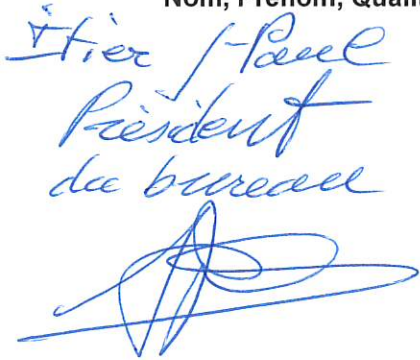 Nom, Prénom, Qualit
Itier J-Paul
Président
du bureau